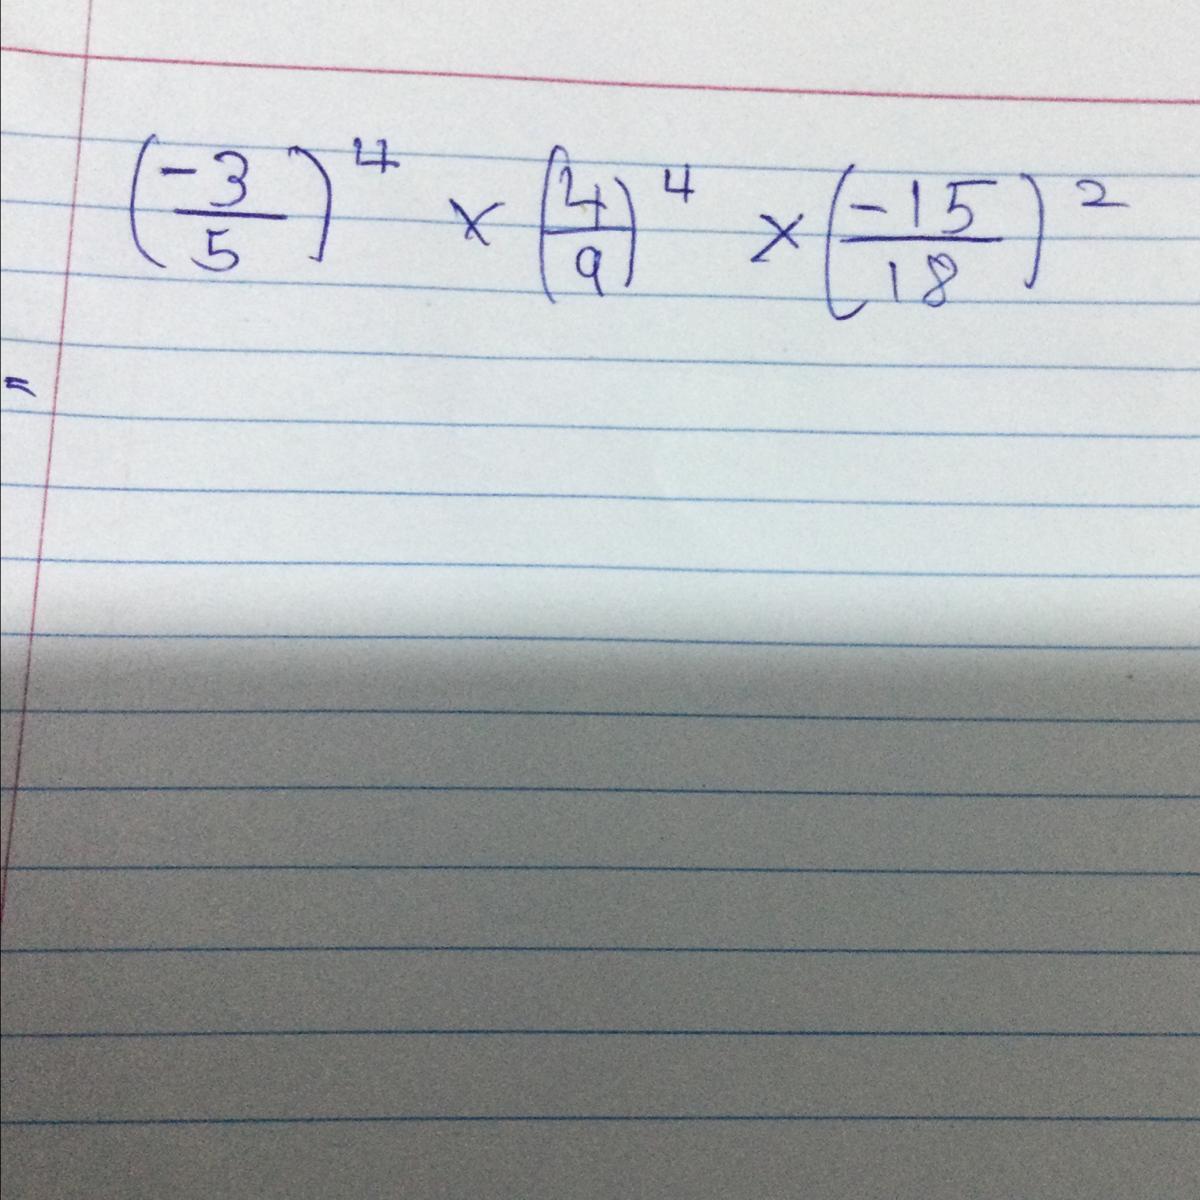 (-3/5)^4 × (4/9)^4 × (-15/18)^2
=